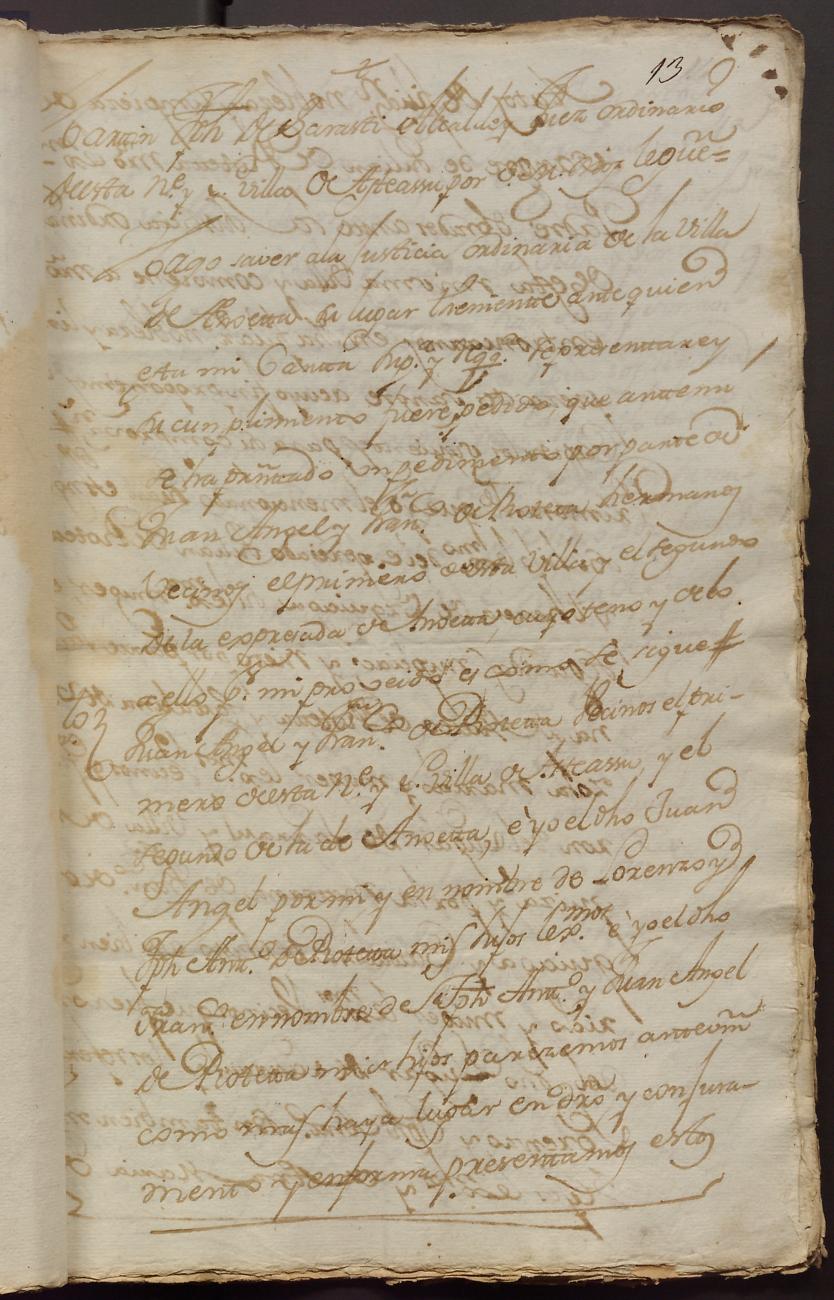 13
Martin Jph de Larasti Alcalde y Juez ordinario
desta N.e y L. Villa de Asteassu por S. M.
Hago saver ala Justicia ordinaria de la Villa
de Andoettta su lugar theniente ante quien
esta mi Cartta Sup.a y Req.a se presenttare y
su cunplimiento fuere pedido, que antte mi
se ha presentado un pedimento por parte de
Juan Angel y Fran.co de Rotetta hermanos
Vecinos el primero desta Villa y el segundo
de la expresada de Andoetta cuyo tenor y de lo
a ello p.r mi proveido es como se sigue
Juan Angel y Fran.co de Rotetta Vecinos el pri-
mero desta N.e y L. Villa de Asteassu, y el
segundo de la de Andoetta, e yo el dho Juan
Angel por mi y en nombre de Lorenzo y
Jph Ant.o de Rotetta mis hijos lex.mos e yo el dho
Fran.co en nombre de Jph Ant.o y Juan Angel
de Rotetta mis hijos parezemos ante Vm
como mas haya lugar en dro y con Jura-
mento y en forma presentamos estos